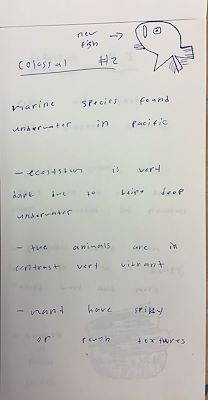 new
fish
colossal #2
marine species found
underwater in pacific
- ecostsem is very
dark due to being deep
underwater
- the animals are in
contrast very vibrant
- many have spiky
or rough textures